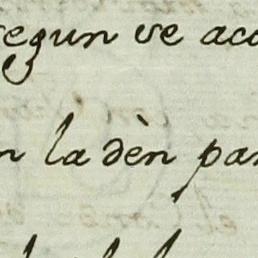 segun se aco
n la dèn par